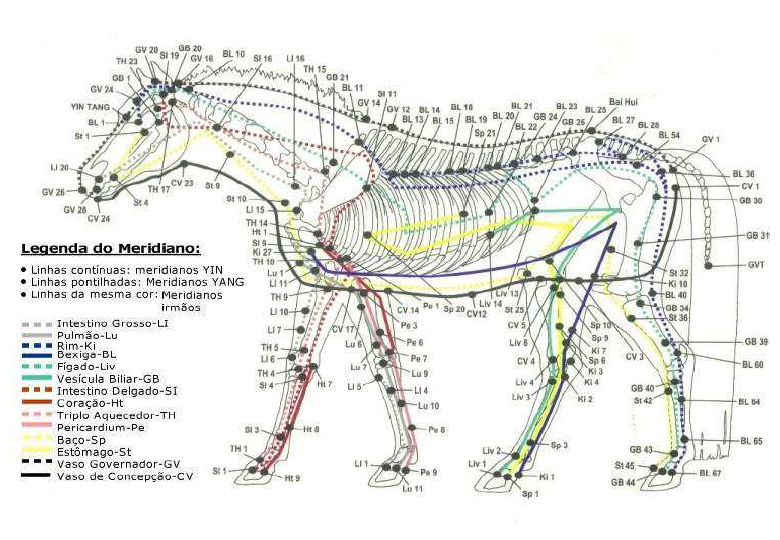 GV 20
GB 20
BL 10
TH 23
SI 19
GV 16
SI 16
LI 16
TH 15
GB 21
BL 11
GB 1
GV 24
SI 11
GV 14
GV 12
BL 14
BL 13
BL 15
BL 18
BL 19
Sp 21
BL 20
BL 21
BL 22
GB 24
BL 23
GB 25
BL 25
Bai Hui
BL 27
BL 28
BL 54
GV 1
YIN TANG
BL 1
St 1
LI 20
GV 26
GV 28
CV 24
St 4
TH 17
CV 23
St 9
St 10
LI 15
TH 14
Ht 1
SI 9
Ki 27
TH 10
Lu 1
LI 11
TH 9
LI 10
LI 7
TH 5
LI 6
TH 4
SI 4
Ht 7
SI 3
Ht 8
TH 1
SI 1
Ht 9
BL 36
CV 1
GB 30
GB 31
GVT
St 32
Ki 10
BL 40
GB 34
St 36
GB 39
BL 60
CV 3
GB 40
St 42
BL 64
BL 65
GB 43
St 45
GB 44
BL 67
CV 17
CV 14
Pe 1
Sp 20
CV12
Liv 14
Liv 13
St 25
CV 5
Liv 8
CV 4
Liv 4
Liv 3
Sp 10
Sp 9
Ki 7
Sp 6
Ki 3
Ki 4
Ki 2
Liv 2
Liv 1
Sp 3
Ki 1
Sp 1
Pe 3
Lu 6
Pe 6
Pe 7
Lu 7
Lu 9
LI 5
LI 4
Lu 10
Pe 8
LI 1
Pe 9
Lu 11
Legenda do Meridiano:
• Linhas contínuas: meridianos YIN
• Linhas pontilhadas: Meridianos YANG
• Linhas da mesma cor: Meridianos
irmãos
Intestino Grosso-LI
Pulmão-Lu
Rim-Ki
Bexiga-BL
Fígado-Liv
Vesícula Biliar-GB
Intestino Delgado-SI
Coração-Ht
Triplo Aquecedor-TH
Pericardium-Pe
Baço-Sp
Estômago-St
Vaso Governador-GV
Vaso de Concepção-CV